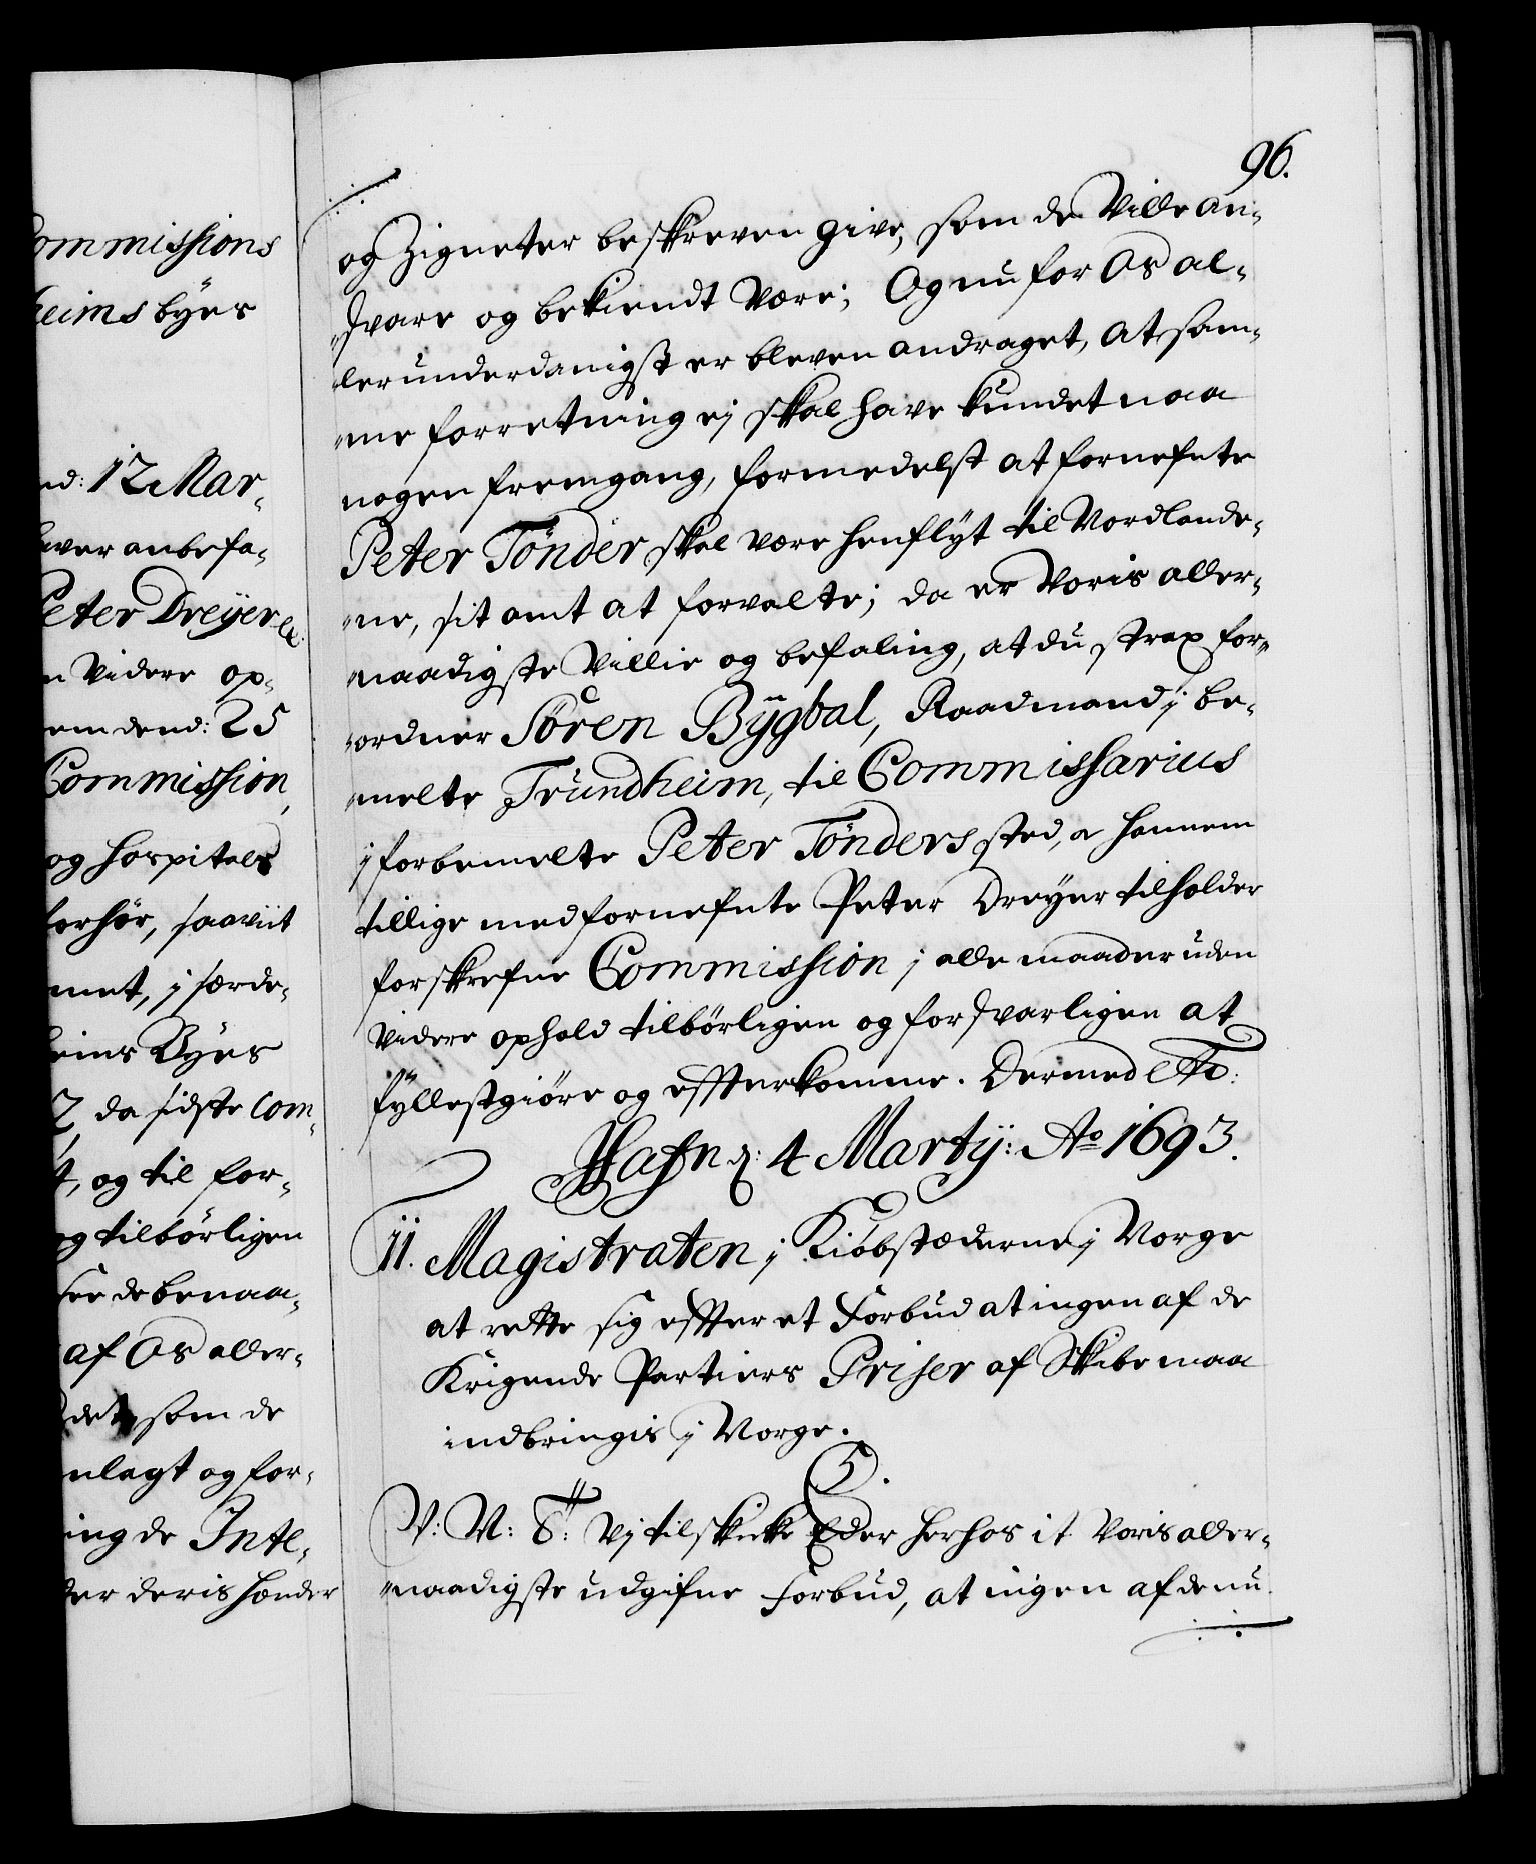 ommissions
heims byes
nd: 12 Mar-
hver anbefa-
Peter Dreyer &c:
n videre op-
em dend: 25
Commission,
og Hospitals
forhør, saaviit
met, j særde-
eims Byes
2, da sidste Com-
t, og til for-
og tilbørligen
see de benaa-
af Os aller-
det, som de
nlagt og for-
ing de Inte-
der deris hænder
96.
og Zigneter beskreven give, som de Ville an-
svare og bekiendt være; Og nu for Os al-
lerunderdanigst er bleven andraget, at sam-
me forretning ej skal have kundet naa
nogen fremgang, formedelst at fornefnte
Peter Tønder skal være henflyt til Nordlande-
ne, sit amt at forvalte; da er Voris aller-
naadigste Villie og befaling, at du strax for-
ordner Søren Bygbal, Raadmand j be-
melte Trundheim, til Commissarius
j forbemelte Peter Tønders sted, a hannem
tillige med fornefnte Peter Dreyer tilholder
forskrefne Commission j alle maader uden
videre ophold tilbørligen og forsvarligen at
fyllestgiøre og effterkomme. Dermed &c:
Hafn d: 4 Martij: Ao 1693.
11. Magistraten j Kiøbstæderne j Norge
at rette sig effter et Forbud at ingen af de
Krigende Partiers Priser af Skibe maa
indbringis j Norge.
C 5.
V: V: G: Vj tilskicke Eder herhos it Voris aller-
naadigste udgifne Forbud, at ingen af de nu